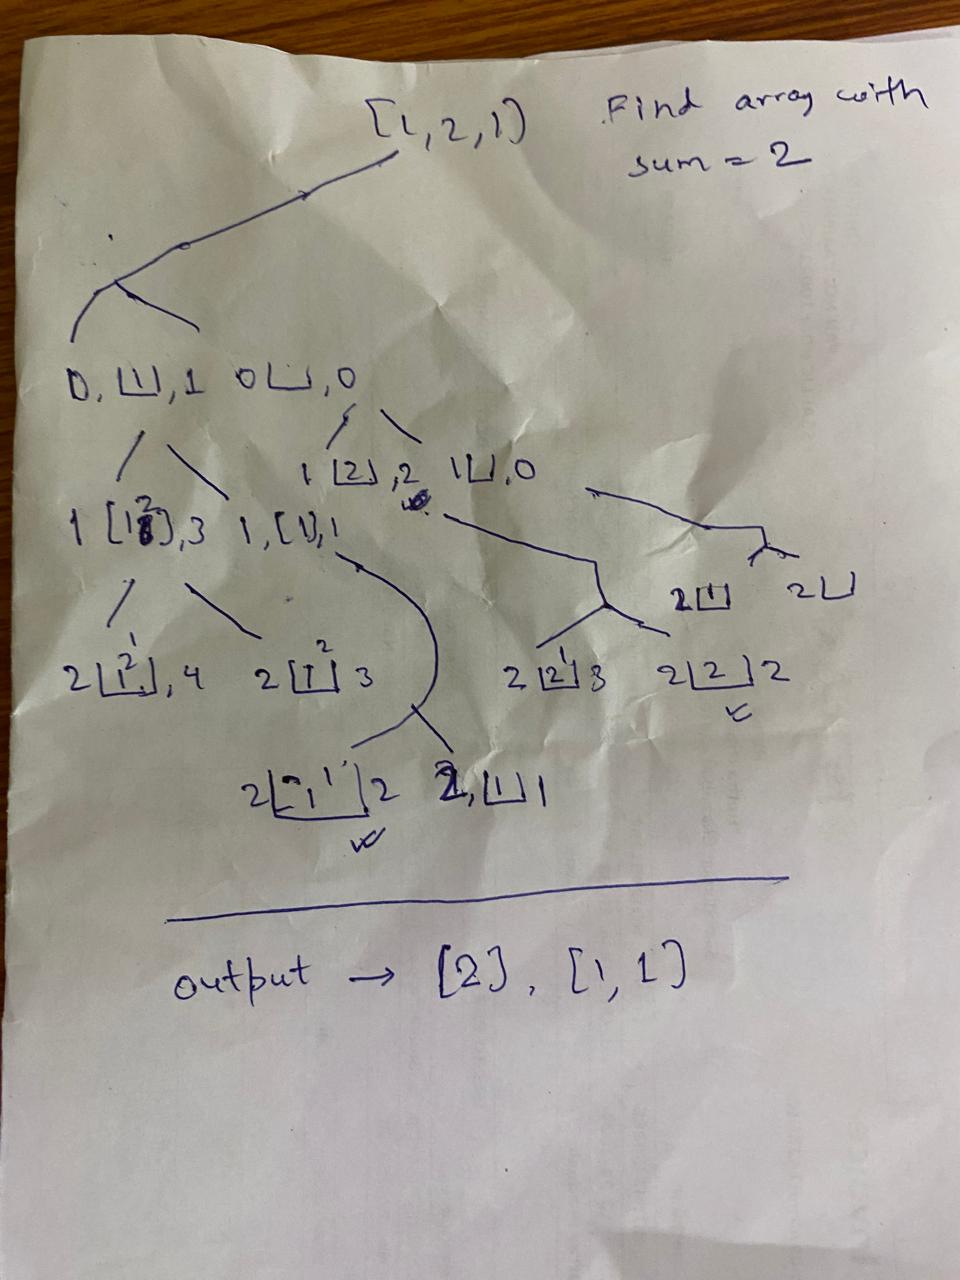 [1, 2, 1]
Find array with
sum = 2
0, [1], 1 0 [ ], 0
1 [2], 2 1 [ ], 0
1 [1 2], 3 1, [1], 1
2 [1] 2 [ ]
2 [1 2 1], 4 2 [1 2] 3 2 [2 1] 3 2 [2] 2
2 [1 1] 2 2, [1] 1
output → [2], [1, 1]